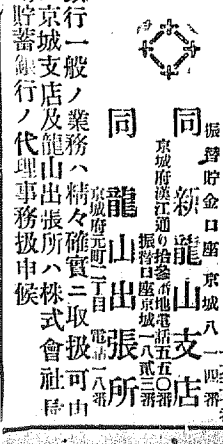 振替貯金口座京城八一四番
同 新龍山支店
京城府漢江通り拾參番地電話五五〇番
振替口座京城一八貳三番
同 龍山出張所
京城府元町二丁目 電話一八番
銀行一般ノ業務ハ精々確實ニ取扱可申
京城支店及龍山出張所ハ株式會社長
貯蓄銀行ノ代理事務扱申候